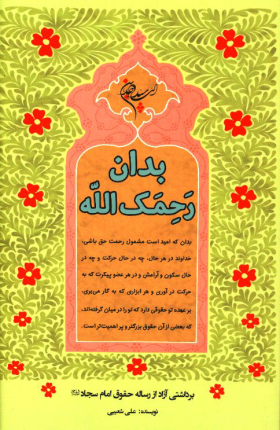 بدان
رَحِمَکَ اللّه
بدان که امید است مشمول رحمت حق باشی،
خداوند در هر حال، چه در حال حرکت و چه در
حال سکون و آرامش و در هر عضو پیکرت که به
حرکت در آوری و هر ابزاری که به کار می‌بری،
بر عهده تو حقوقی دارد که تو را در میان گرفته‌اند،
که بعضی از آن حقوق بزرگتر و پر اهمیت‌تر است.
برداشتی آزاد از رساله حقوق امام سجاد
نویسنده: علی شعیبی